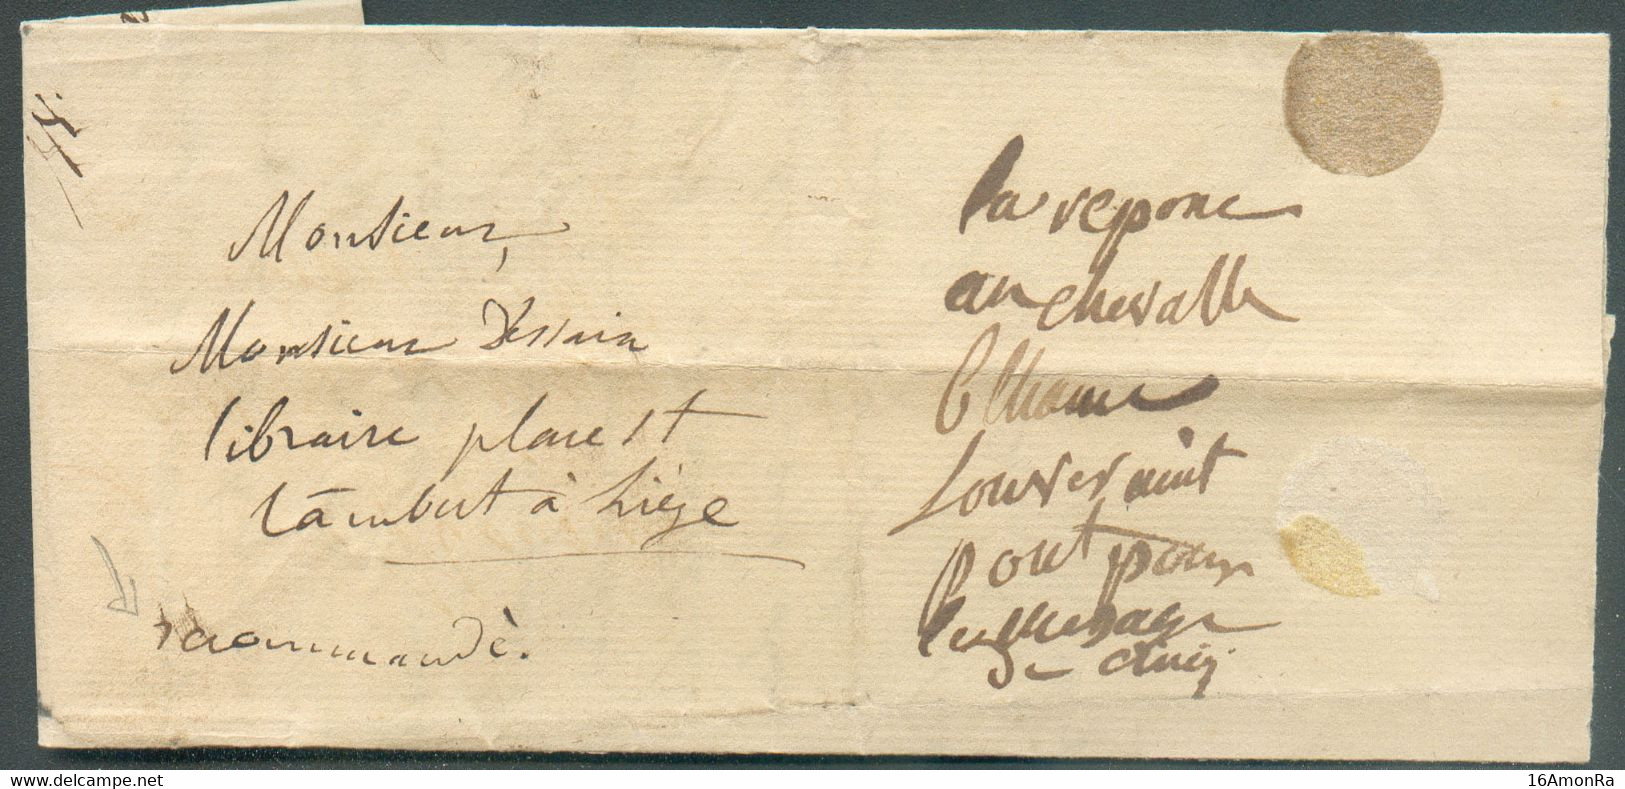 Monsieur,
Monsieur Dessain
libraire place St
Lambert à Liège
recommandè.
la repone
au chevalle
blhanc
souveraint
pont pour
le message
delcampe.net
16AmonRa